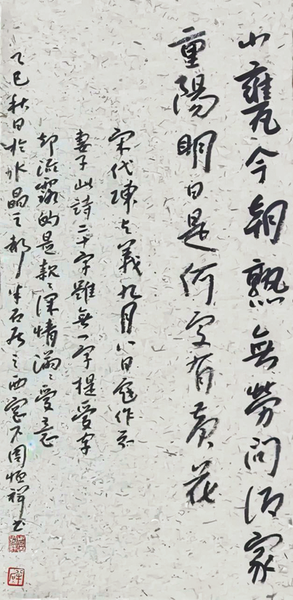 小甕今朝熟無勞問酒家
重陽明日是何处有黄花
宋代陳与義九月八日戲作示
妻子此詩二十字雖無一字提愛字
却流露的是款〻深情滿〻愛意
乙巳秋日於水晶之都半石居之西窗下周恒祥書